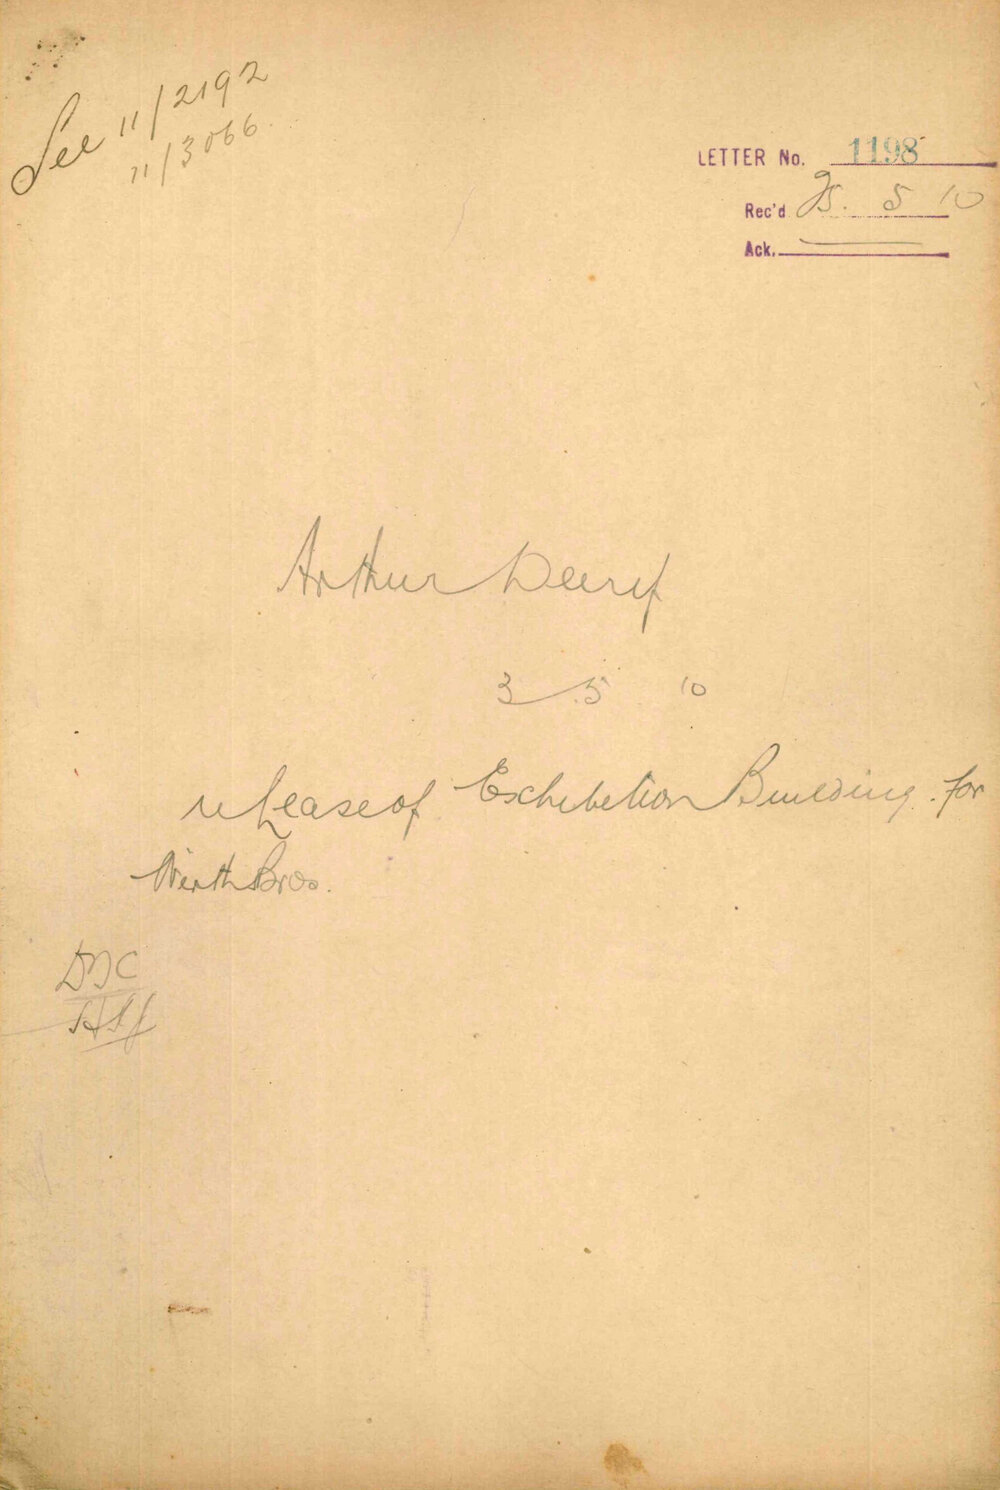 See 11/2192
11/3066
LETTER No. 1198
Rec'd 25. 5 10
Ack.
Arthur
3 5 10
re Lease of Exhibition Building for
Wirth Bros.